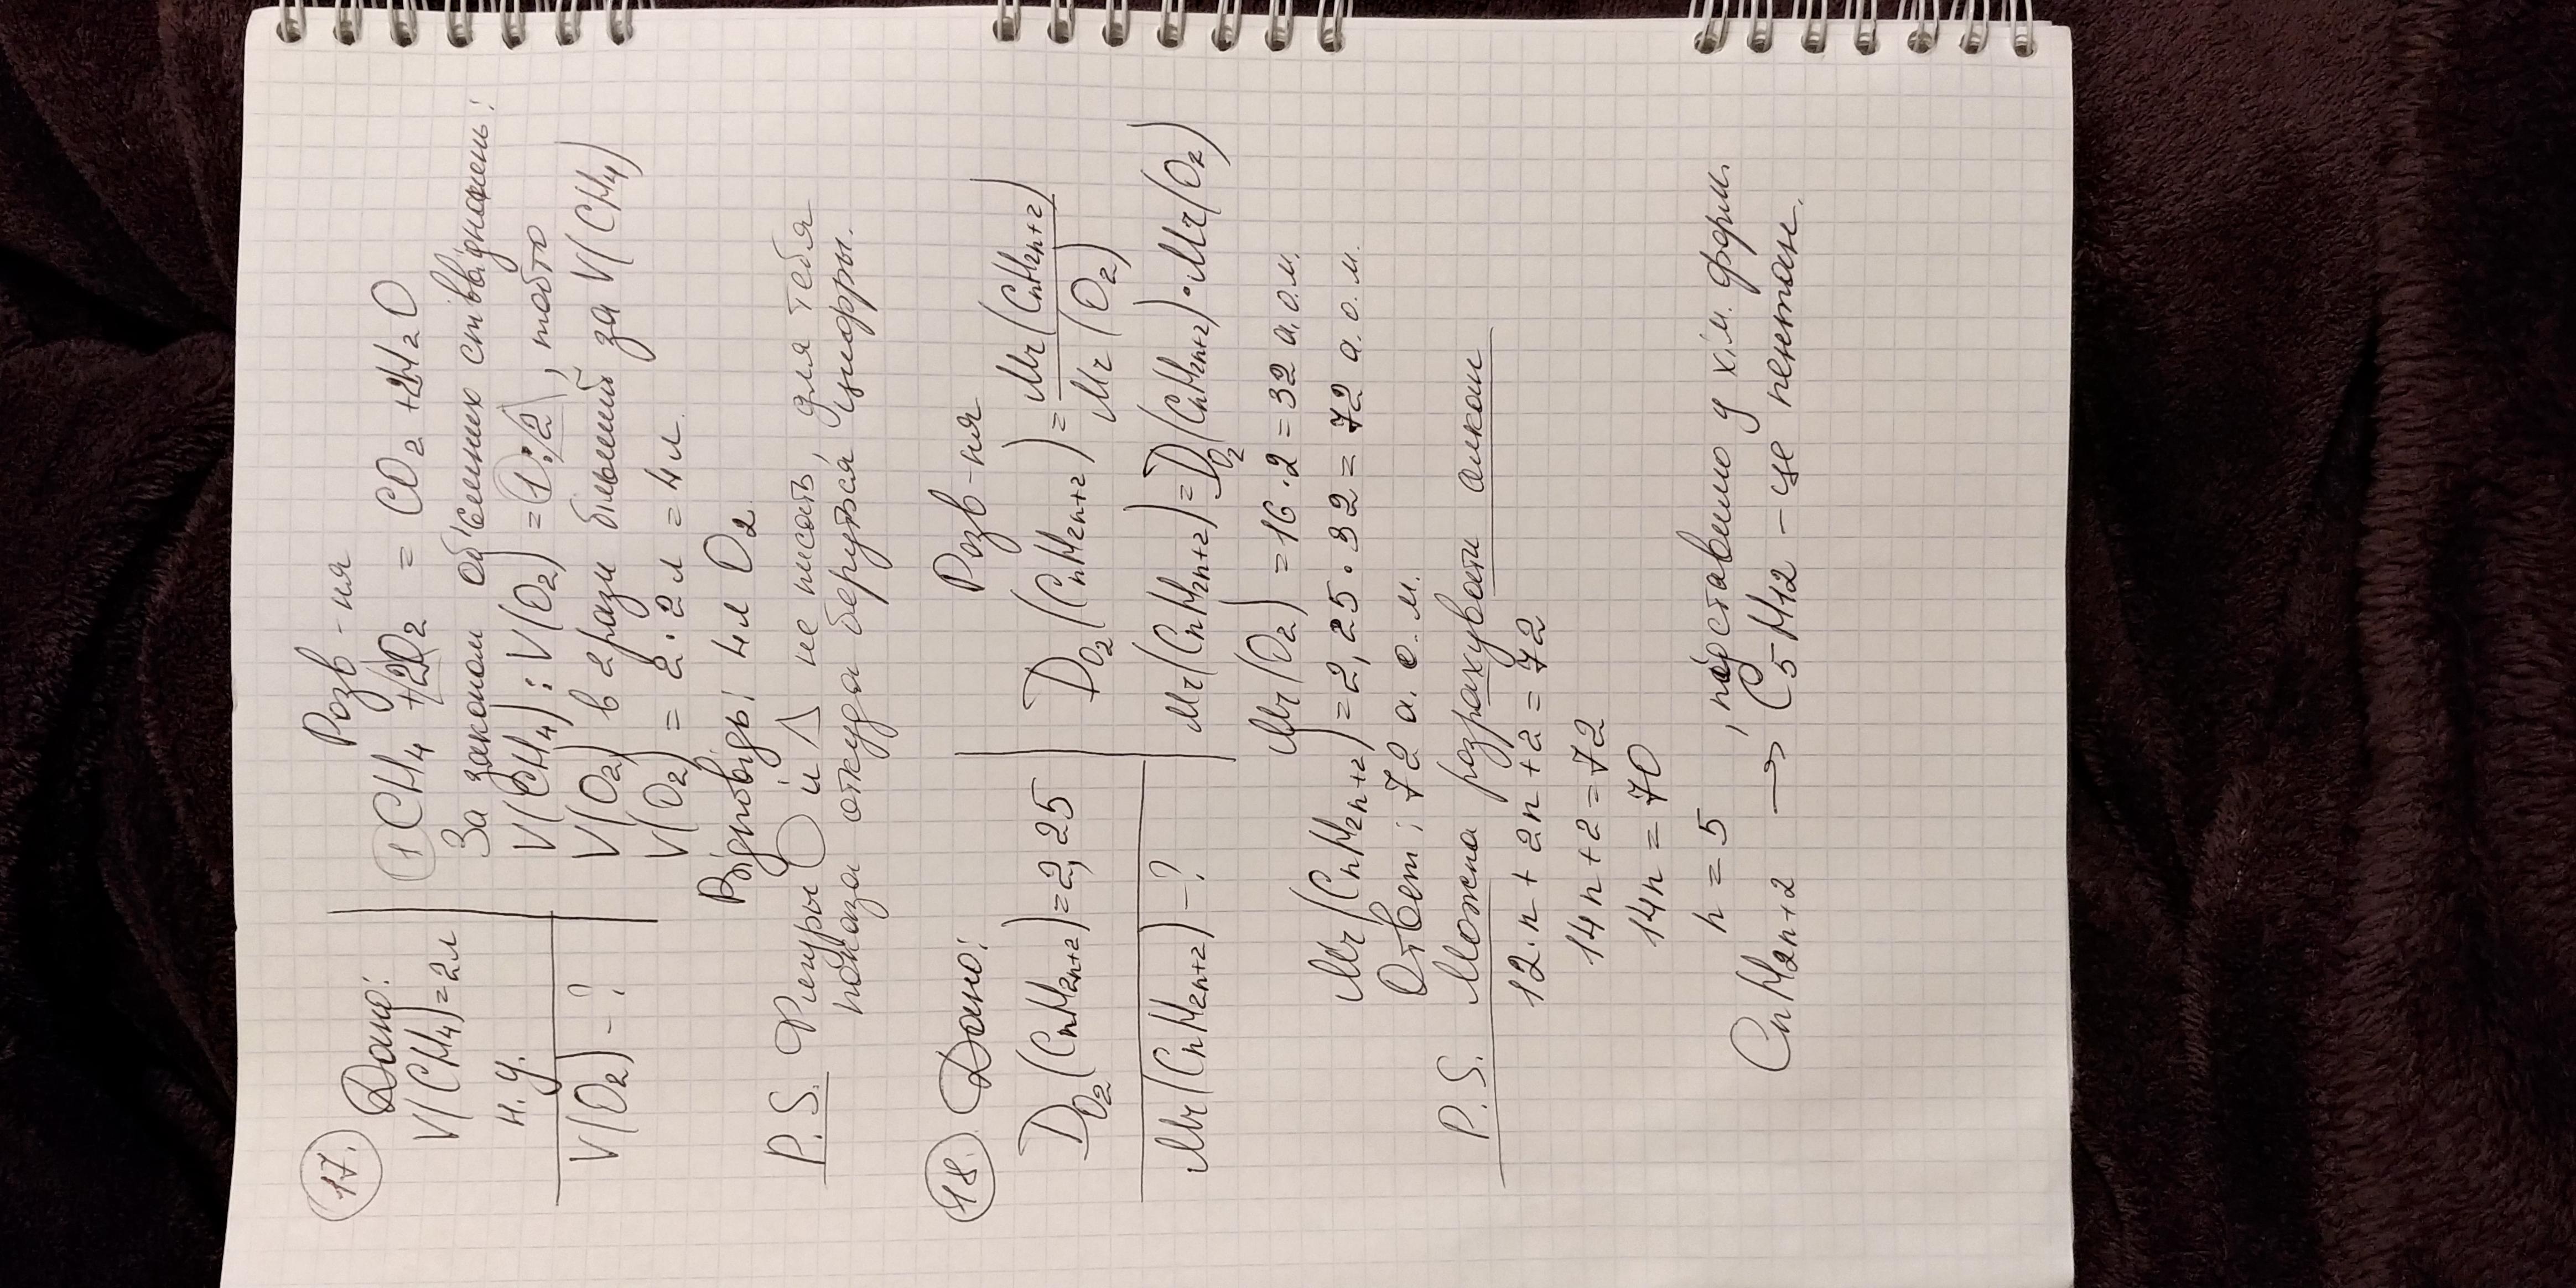 17. Дано:
V(CH4)=2л
н.у.
V(O2)-?
Розв-ня
1CH4 + 2O2 = CO2 + 2H2O
За законом об'ємних співвідношень:
V(CH4) : V(O2) = 1:2, тобто
V(O2) в 2 рази більший за V(CH4)
V(O2) = 2·2л = 4л.
Відповідь: 4л O2
P.S. Фигуры ○ и △ не писать, для тебя
показа откуда берутся цифры.
18. Дано:
DO2(CnH2n+2)=2,25
Mr(CnH2n+2)-?
Розв-ня
DO2(CnH2n+2) = Mr(CnH2n+2)
Mr(O2)
Mr(CnH2n+2)=DO2(CnH2n+2)·Mr(O2)
Mr(O2) = 16·2=32 а.о.м.
Mr(CnH2n+2)=2,25·32=72 а.о.м.
Ответ: 72 а.о.м.
P.S. Можна розрахувати алкан
12·n + 2n+2=72
14n+2=72
14n=70
n=5, підставимо у хім. форм.
CnH2n+2 → C5H12 - це пентан.